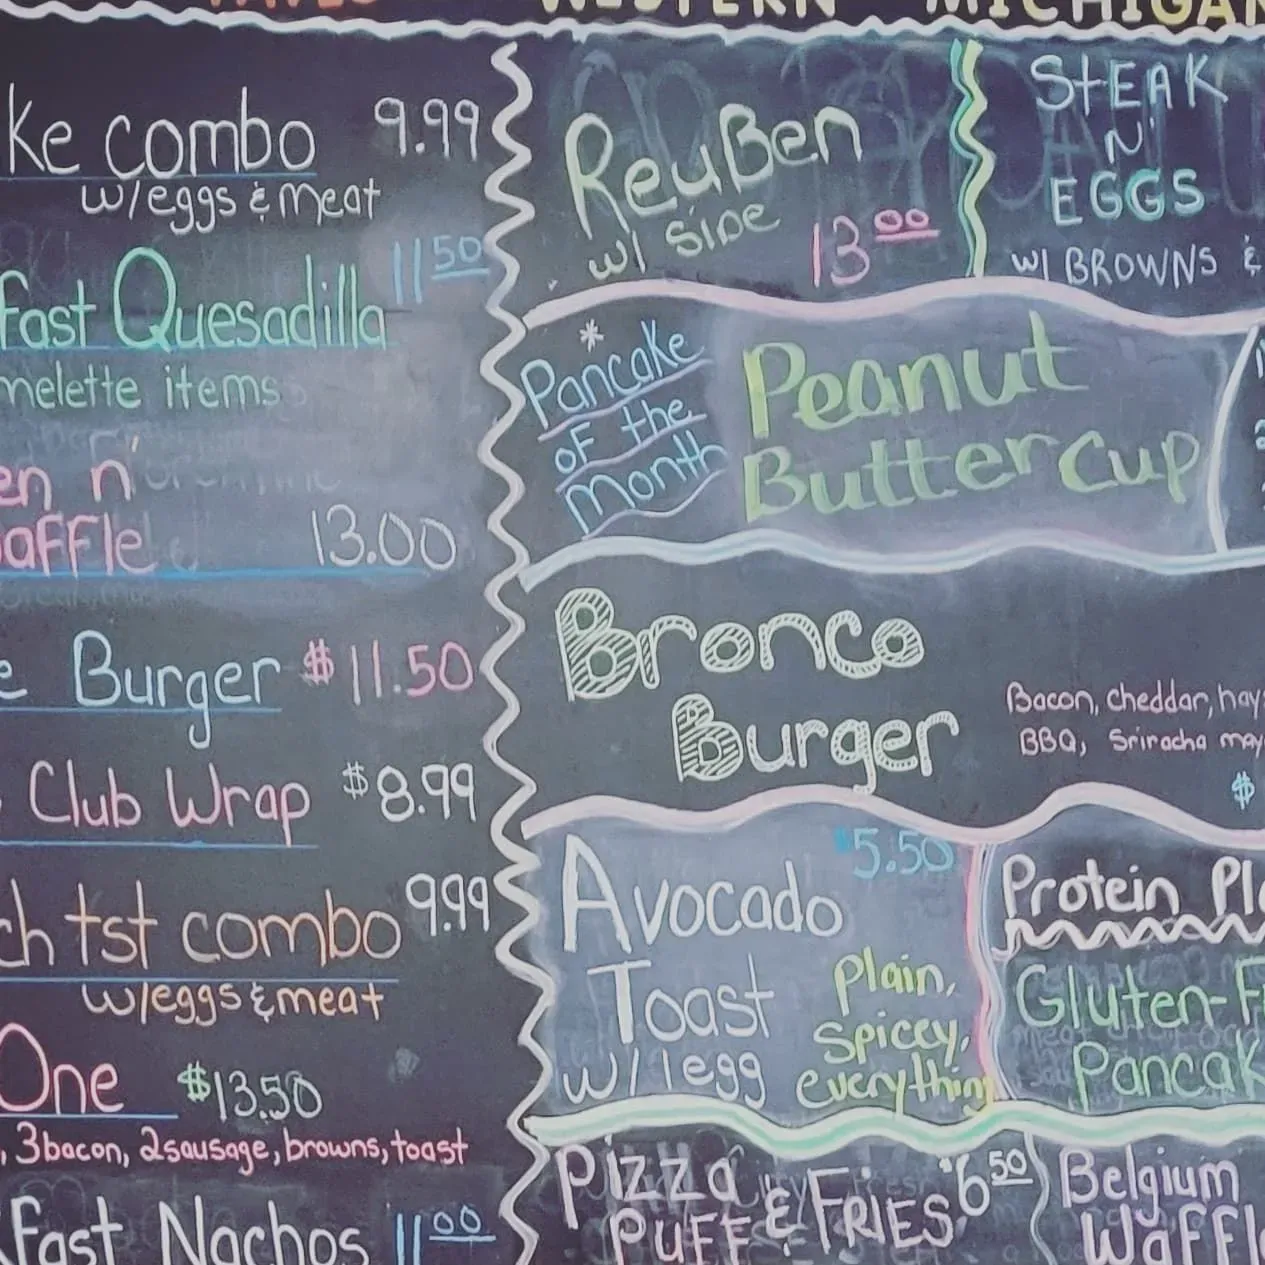 WESTERN MICHIGAN
ke combo 9.99
w/eggs & meat
fast Quesadilla 11 50
melette items
en n'
affle 13.00
e Burger $11.50
Club Wrap $8.99
ch tst combo 9.99
w/eggs & meat
One $13.50
, 3 bacon, 2 sausage, browns, toast
fast Nachos 11 00
ReuBen
w/ Side 13 00
STEAK
N'
EGGS
w/ BROWNS &
*
Pancake
of the
Month
Peanut
Butter Cup
Bronco
Burger
Bacon, cheddar, hay
BBQ, Sriracha may
$
Avocado $5.50
Toast
w/ 1 egg
Plain,
Spiccy,
everything
Protein Pl
Gluten-F
Pancak
Pizza
Puff & Fries $6 50
Belgium
Waffl